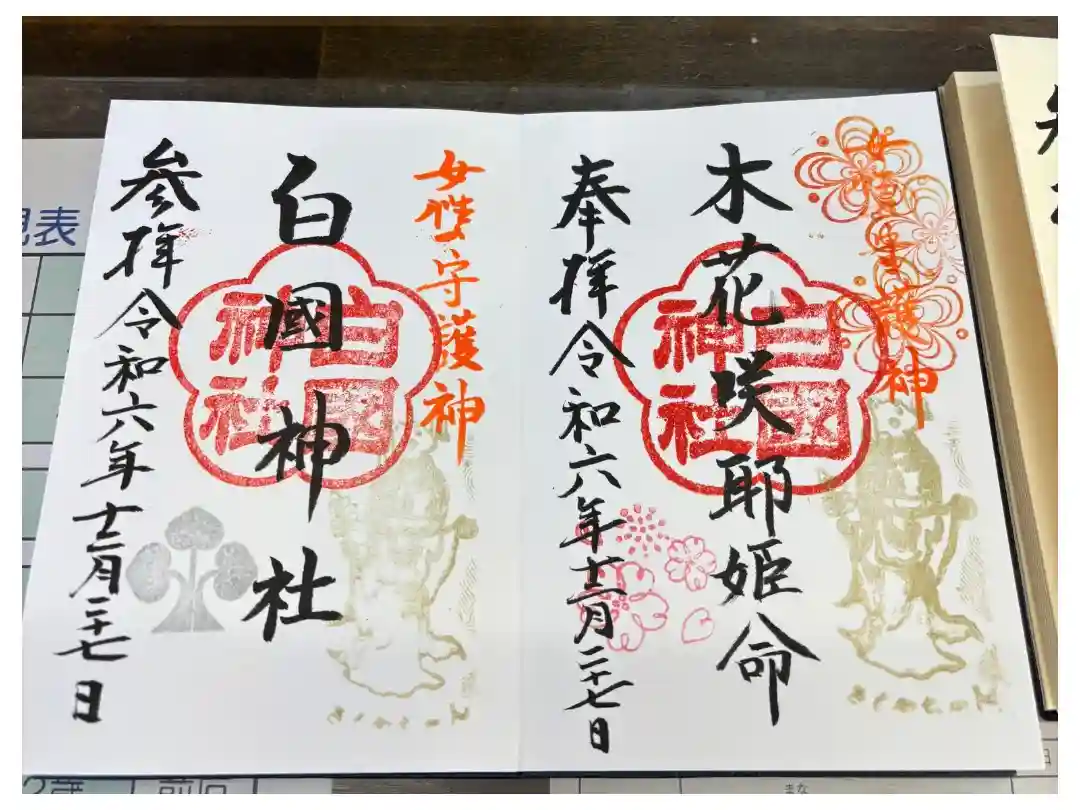 木花咲耶姫命
女性守護神
白國神社
奉拝令和六年十二月二十七日
女性守護神
白國神社
白國神社
参拝令和六年十二月二十七日
見表